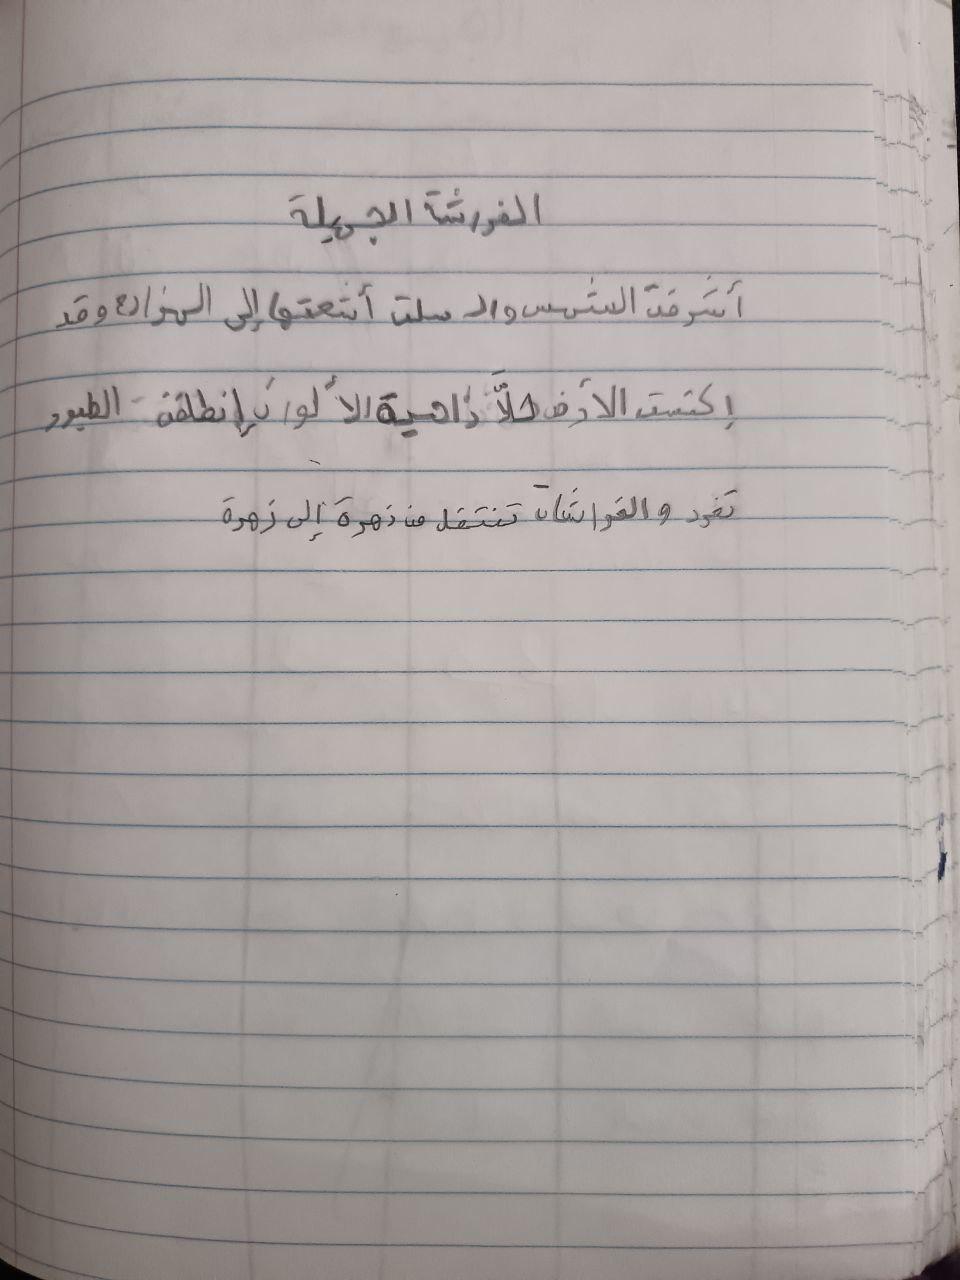 الفورشة الجميلة
أشرقت الشمس والد سلت أشعتها إلى المزارع وقد
إكتست الأرض حلاً زاهية الألوان إنطلقة الطيور
تغرد و الفراشات تنتقل من زهرة إلى زهرة